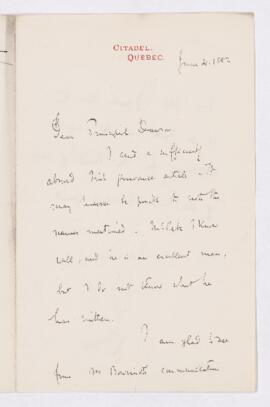 CITADEL.
QUEBEC.
June 4. 1882
Dear Principal Dawson
I send a sufficiently
absurd Irish furnance article. It
may however be possible to note the
names mentioned. I know
well, and he is an excellent man,
but I do not know what he
has written.
I am glad to see
from Mr Bourinot's communication